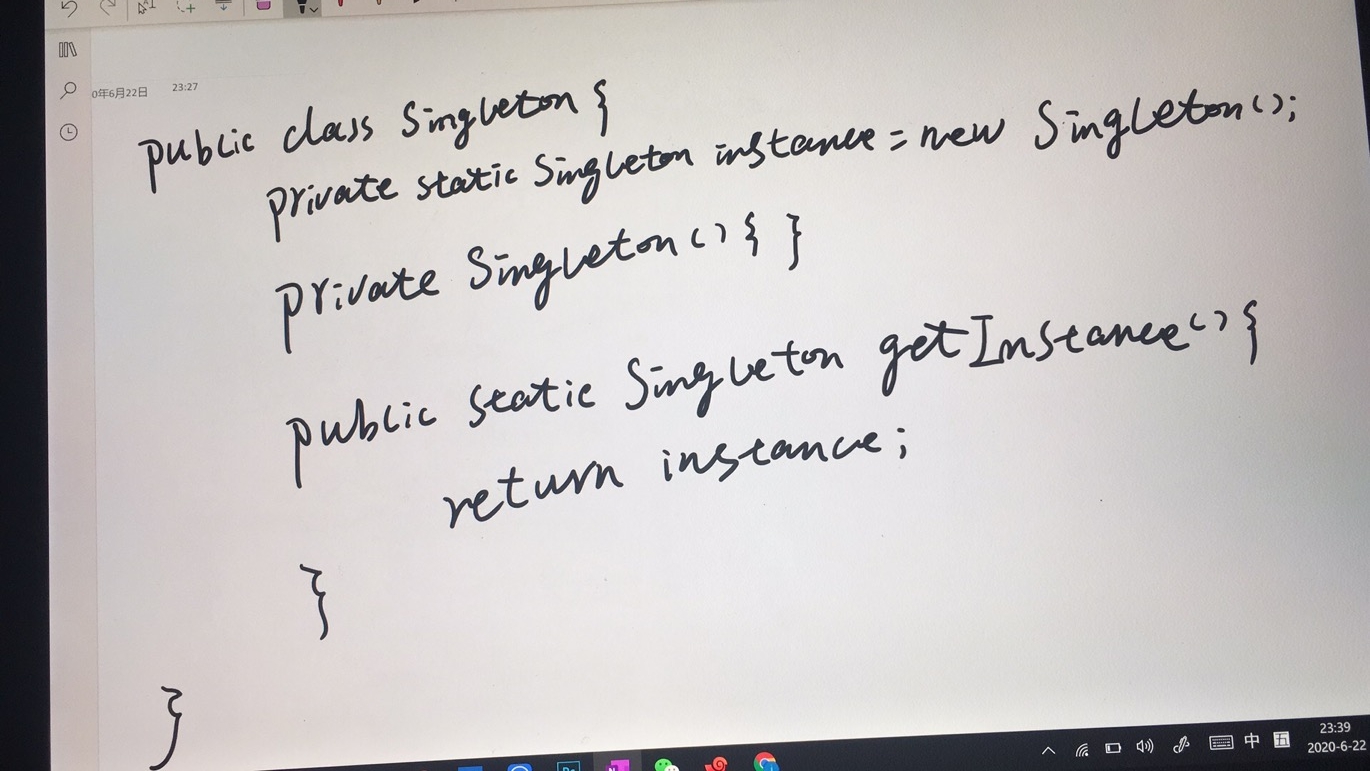 0年6月22日 23:27
public class Singleton {
private static Singleton instance = new Singleton();
private Singleton() { }
public static Singleton getInstance() {
return instance;
}
}
中 五 23:39
2020-6-22